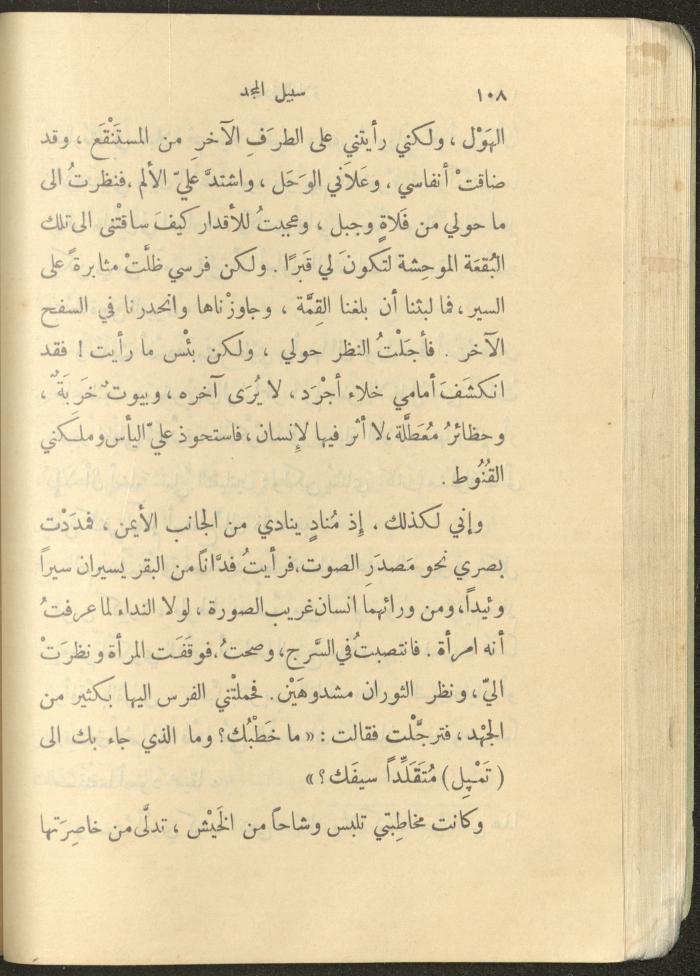 ١٠٨ سبيل المجد
الهَوْل ، ولكني رأيتني على الطرَفِ الآخرِ من المستَنْقَع ، وقد
ضاقتْ أنفاسي ، وعَلاَني الوَحَل ، واشتدَّ عليّ الألم ، فنظرتُ الى
ما حولي من فَلاةٍ وجبل ، وعجبتُ للأقدار كيفَ ساقتْنى الى تلك
البُقعَة الموحِشة لتكونَ لي قَبرًا . ولكن فرسي ظلَّتْ مثابرةً على
السير ، فما لبثنا أن بلغنا القِمَّة ، وجاوزْناها وانحدرنا في السفح
الآخر . فأجَلْتُ النظر حولي ، ولكن بئْس ما رأيت ! فقد
انكشَفَ أمامي خلاء أجْرَد ، لا يُرَى آخره ، وبيوتٌ خَرِبَةٌ ،
وحظائرُ مُعَطَّلَة ، لا أثر فيها لإِنسان ، فاستحوذ عليّ اليأس وملكَني
القُنُوط .
وإني لكذلك ، إِذ مُنادٍ ينادي من الجانب الأيمن ، فمدَدْت
بصري نحو مَصدَرِ الصوت ، فرأيتُ فدَّاناً من البقر يسيران سيراً
وئيداً ، ومن ورائهما انسان غريب الصورة ، لولا النداء لما عرفتُ
أنه امرأة . فانتصبتُ في السَّرج ، وصحتُ ، فوقَفَت المرأة ونظرَتْ
اليّ ، ونظر الثوران مشدوهَيْن . فحملتْني الفرس اليها بكثير من
الجهْد ، فترجَّلْت فقالت : « ما خَطْبُك ؟ وما الذي جاء بك الى
( تَمْپِل ) مُتَقَلِّداً سيفَك ؟ »
وكانت مخاطِبتي تلبس وشاحاً من الخَيْش ، تدلَّى من خاصِرَتها